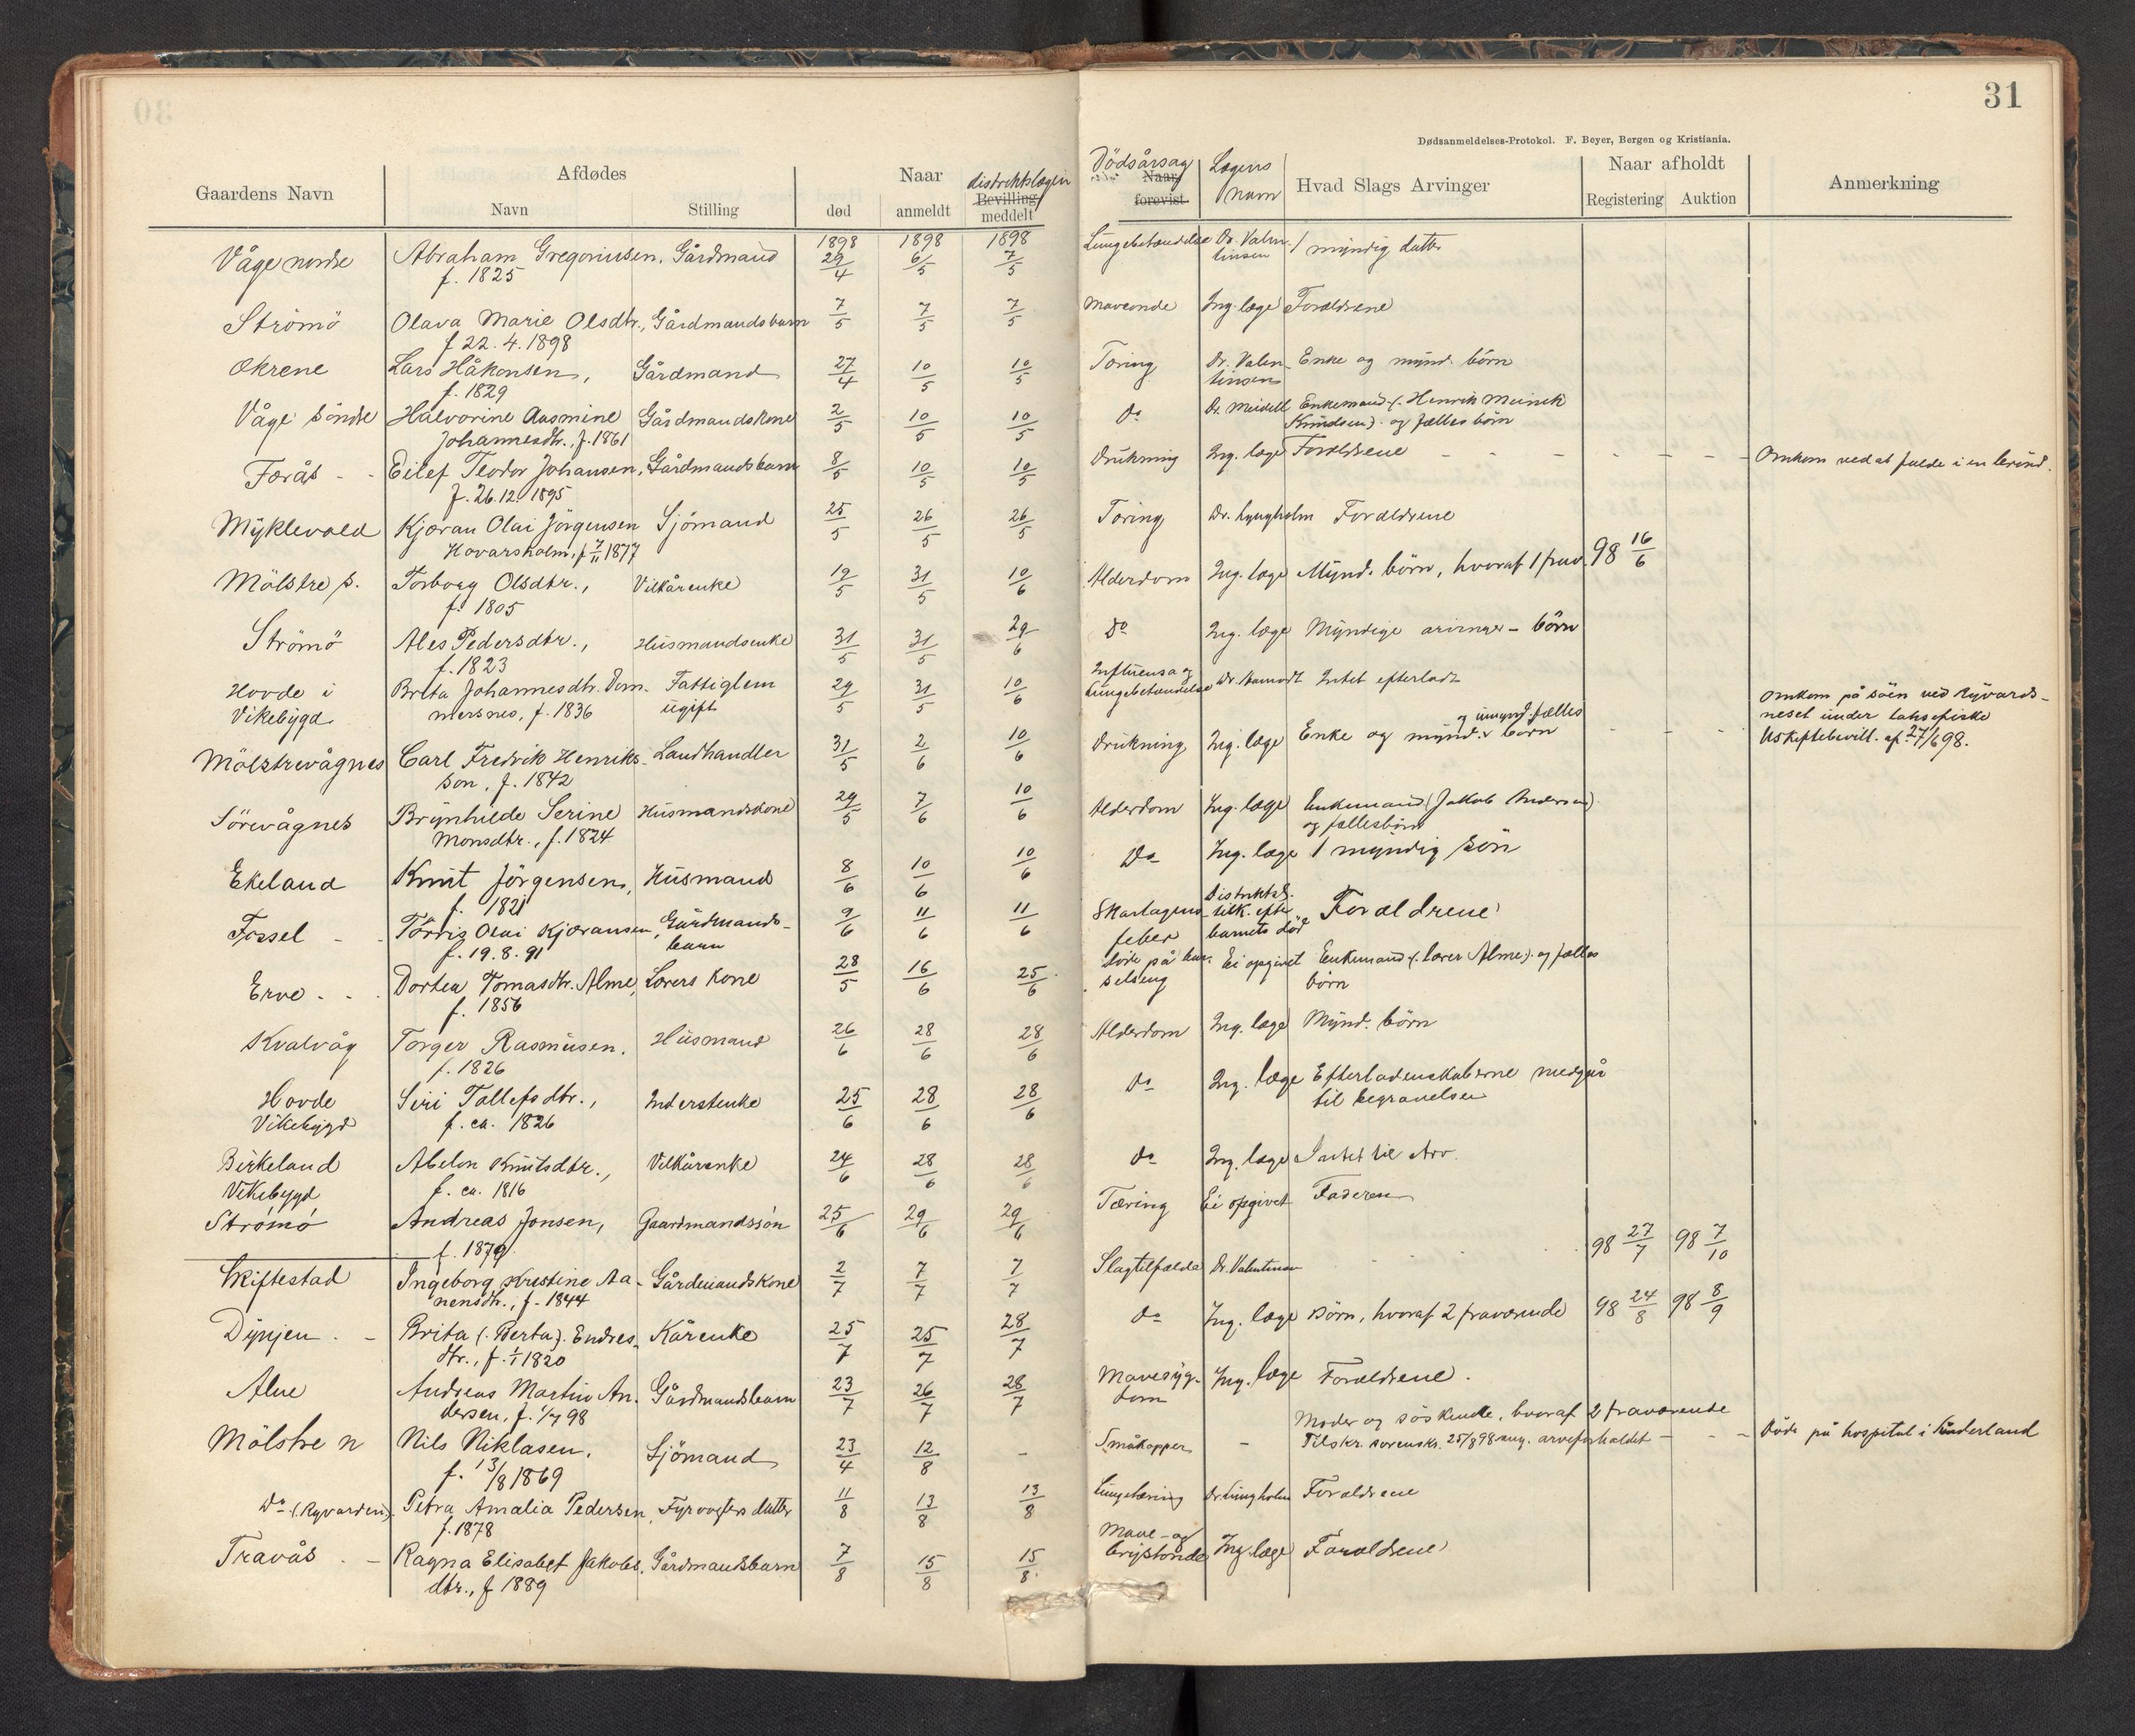 31
Dødsanmeldelses-Protokol. F. Beyer, Bergen og Kristiania.
Gaardens Navn Afdødes Naar
Navn Stilling død anmeldt distriktslægen Bevilling meddelt
Dödsårsag Naar forevist Lægens navn Hvad Slags Arvinger Naar afholdt Anmerkning
Registering Auktion
1898 1898 1898
Våge nordre Abraham Gregoriussen, Gårdmand 29/4 6/5 7/5 Lungebetændelse Dr. Valen- 1 myndig datter
f. 1825 tinsen
Strömö Olava Marie Olsdtr., Gårdmandsbarn 7/5 7/5 7/5 Maveonde Ing. læge Forældrene
f 22.4.1898
Økrene Lars Håkonsen, Gårdmand 27/4 10/5 10/5 Tæring Dr. Valen- Enke og mynd. börn
f. 1829 tinsen
Våge söndre Halvorine Aasmine Gårdmandskone 2/5 10/5 10/5 Do Dr. Meidell Enkemand (. Henrik Meinik
Johannesdtr., f. 1861 Knudsen). og fælles börn
Færås - - Eilef Teodor Johansen, Gårdmandsbarn 8/5 10/5 10/5 Drukning Ing. læge Forældrene - - - - - - Omkom ved at falde i en brönd.
f. 26.12.1895
Myklevold Kjøran Olai Jörgensen Sjömand 25/5 26/5 26/5 Tæring Dr. Lyngholm Forældrene
Hovarsholm, f 7/11 1877
Mölstre s. Torborg Olsdtr., Vilkårenke 19/5 31/5 10/6 Alderdom Ing. læge Mynd. börn, hvoraf 1 frav. 98 16/6
f. 1805
Strömö Ales Pedersdtr., Husmandsenke 31/5 31/5 29/6 Do Ing. læge Myndige arvinger - börn
f. 1823
Hovde i Brita Johannesdtr. Dom- Fattiglem 29/5 31/5 10/6 Influensa og Lungebetændelse Intet efterladt
Vikebygd. mersnes, f. 1836 ugift
Mölstrevågnes Carl Fredrik Henriks- Landhandler 31/5 2/6 10/6 Drukning Ing. læge Enke og mynd. og umynd. fælles börn - - - Omkom på söen ved Ryvards-
sön, f. 1842 neset under laksefiske
Uskiftebevill. af 27/6 98.
Sörevågnes Brynhilde Serine Husmandskone 29/5 7/6 10/6 Alderdom Ing. læge Enkemand (Jakob Andersen)
Monsdtr., f. 1824 og fællesbörn
Ekeland Knut Jörgensen, Husmand 8/6 10/6 10/6 Do Ing. læge 1 myndig sön
f. 1821
Fossel - - Tördis Olai Kjæransen, Gårdmands- 9/6 11/6 11/6 Skarlagens- Distriktsl. tilk. efter Forældrene
f. 19.8.91 barn feber barnets död
Erve - - Dortea Tomasdtr. Alme, Lærers kone 28/5 16/6 25/6 döde på bar- Ei opgivet Enkemand (. lærer Alme). og fælles
f. 1856 selseng börn
Kvalvåg Torger Rasmusen. Husmand 26/6 28/6 28/6 Alderdom Ing. læge Mynd. börn
f. 1826
Hovde Siri Tollefsdtr., Inderstenke 25/6 28/6 28/6 Do Ing. læge Efterladenskaberne medgår
Vikebygd f. ca. 1826 til begravelsen
Birkeland Abelon Knutsdtr., Vilkårenke 24/6 28/6 28/6 Do Ing. læge Intet til Arv.
Vikebygd f. ca. 1816
Strömö Andreas Jonsen, Gaardmandssön 25/6 29/6 29/6 Tæring Ei opgivet Faderen
f. 1879
Skiftestad Ingeborg Kristine Aa- Gårdmandskone 2/7 7/7 7/7 Slagtilfælde Dr. Valentinsen 98 27/7 98 7/10
nensdtr., f. 1844
Dynjen - - Brita (. Berta). Endres- Kårenke 25/7 25/7 28/7 Do Ing. læge Börn, hvoraf 2 fraværende 98 24/8 98 8/9
dtr., f. 1/1 1820
Alne Andreas Martin An- Gårdmandsbarn 23/7 26/7 28/7 Mavesyg- Ing. læge Forældrene.
dersen, f. 1/7 98 dom
Mölstre n Nils Niklasen. Sjömand 23/4 12/8 - Småkopper - Moder og söskende, hvoraf 2 fraværende
f. 13/8 1869 Tilskr. sorensk. 25/8 98 ang. arveforholdet - - - Döde på hospital i Sunderland
Do (. Ryvarden). Petra Amalia Pedersen, Fyrvogters datter 11/8 13/8 13/8 Lungetæring Dr. Lungholm Forældrene
f. 1878
Travås - - Ragna Elisabet Jakobs- Gårdmandsbarn 7/8 15/8 15/8 Mave- og brystonde Ing. læge Forældrene
dtr., f 1889